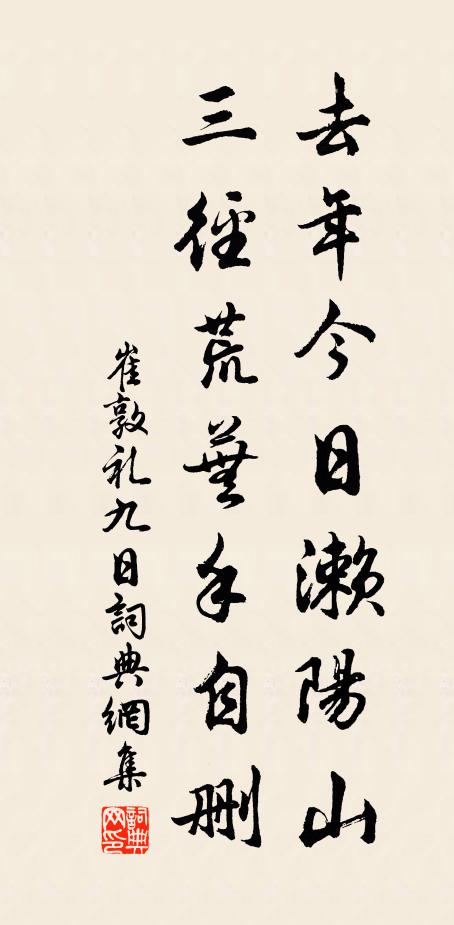 去年今日濑陽山
三徑荒蕪手自刪
崔敦礼九日詞典網集
詞典網印